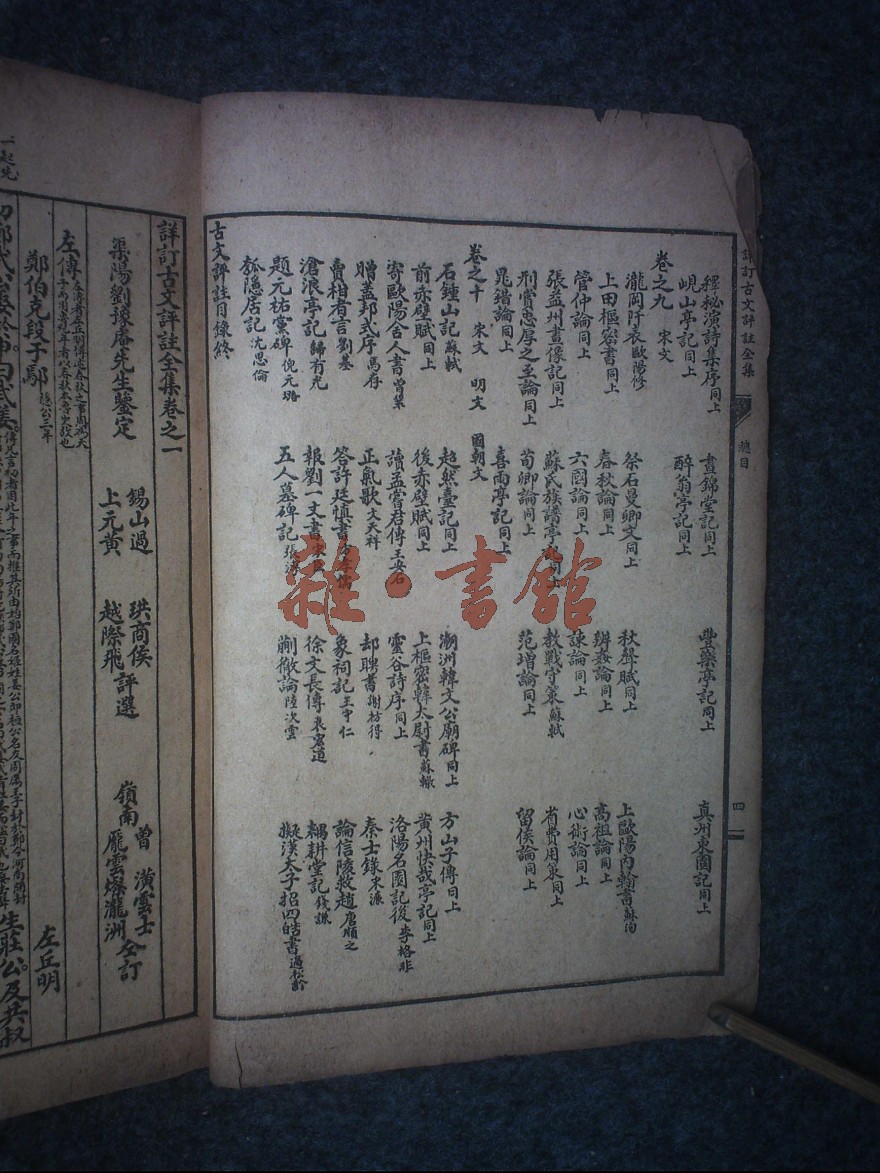 詳訂古文評註全集
總目
四
釋秘演詩集序同上 晝錦堂記同上 豐樂亭記同上 真州東園記同上
峴山亭記同上 醉翁亭記同上
卷之九 宋文
瀧岡阡表歐陽修 祭石曼卿文同上 秋聲賦同上 上歐陽內翰書蘇洵
上田樞密書同上 春秋論同上 辨姦論同上 高祖論同上
管仲論同上 六國論同上 諫論同上 心術論同上
張益州畫像記同上 蘇氏族譜亭記同上 教戰守策蘇軾 省費用策同上
刑賞忠厚之至論同上 荀卿論同上 范增論同上 留侯論同上
鼂錯論同上 喜雨亭記同上
卷之十 宋文 明文 國朝文
石鍾山記蘇軾 超然臺記同上 潮洲韓文公廟碑同上 方山子傳同上
前赤壁賦同上 後赤壁賦同上 上樞密韓太尉書蘇轍 黃州快哉亭記同上
寄歐陽舍人書曾鞏 讀孟嘗君傳王安石 靈谷詩序同上 洛陽名園記後李格非
贈蓋邦式序馬存 正氣歌文天祥 却聘書謝枋得 秦士錄宋濂
賣柑者言劉基 答許廷慎書方孝孺 象祠記王守仁 論信陵救趙唐順之
滄浪亭記歸有光 報劉一丈書宗臣 徐文長傳袁宏道 耦耕堂記錢謙
題元祐黨碑倪元璐 五人墓碑記張溥 蒯徹論陸次雲 擬漢太子招四皓書過松齡
瓠隱居記沈思倫
古文評註目錄終
詳訂古文評註全集卷之一
渠陽劉豫庵先生鑒定 錫山過 珙商侯 嶺南 曾 潢雲士
上元黃 越際飛 評選 龐雲燦瀧洲 仝訂
左傳
左丘明
鄭伯克段于鄢 隱公元年
雜·書館